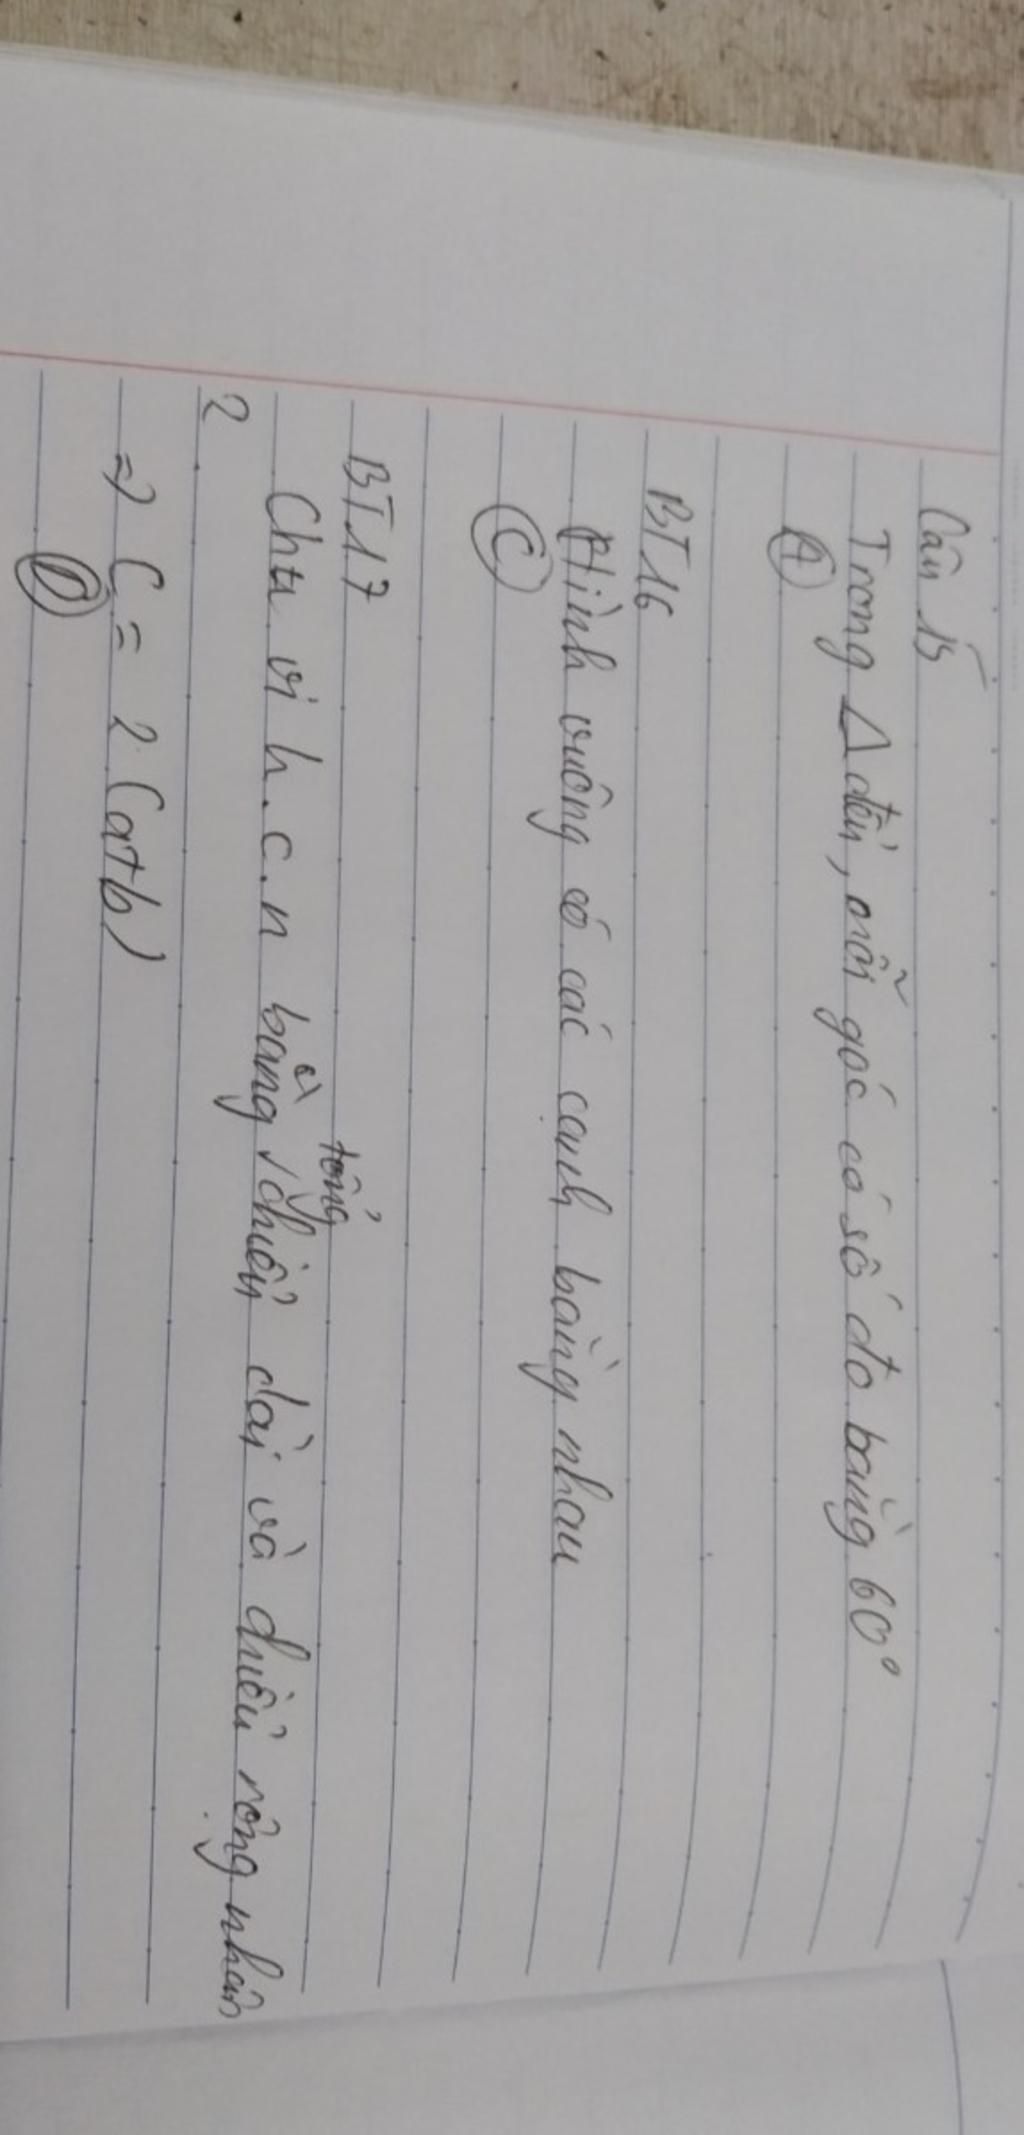 Câu 15
Trong Δ đều, mỗi góc có số đo bằng 60°
A
BT16
Hình vuông có các cạnh bằng nhau
C
BT17
Chu vi h.c.n bằng tổng chiều dài và chiều rộng nhân
2
=> C = 2(a+b)
D